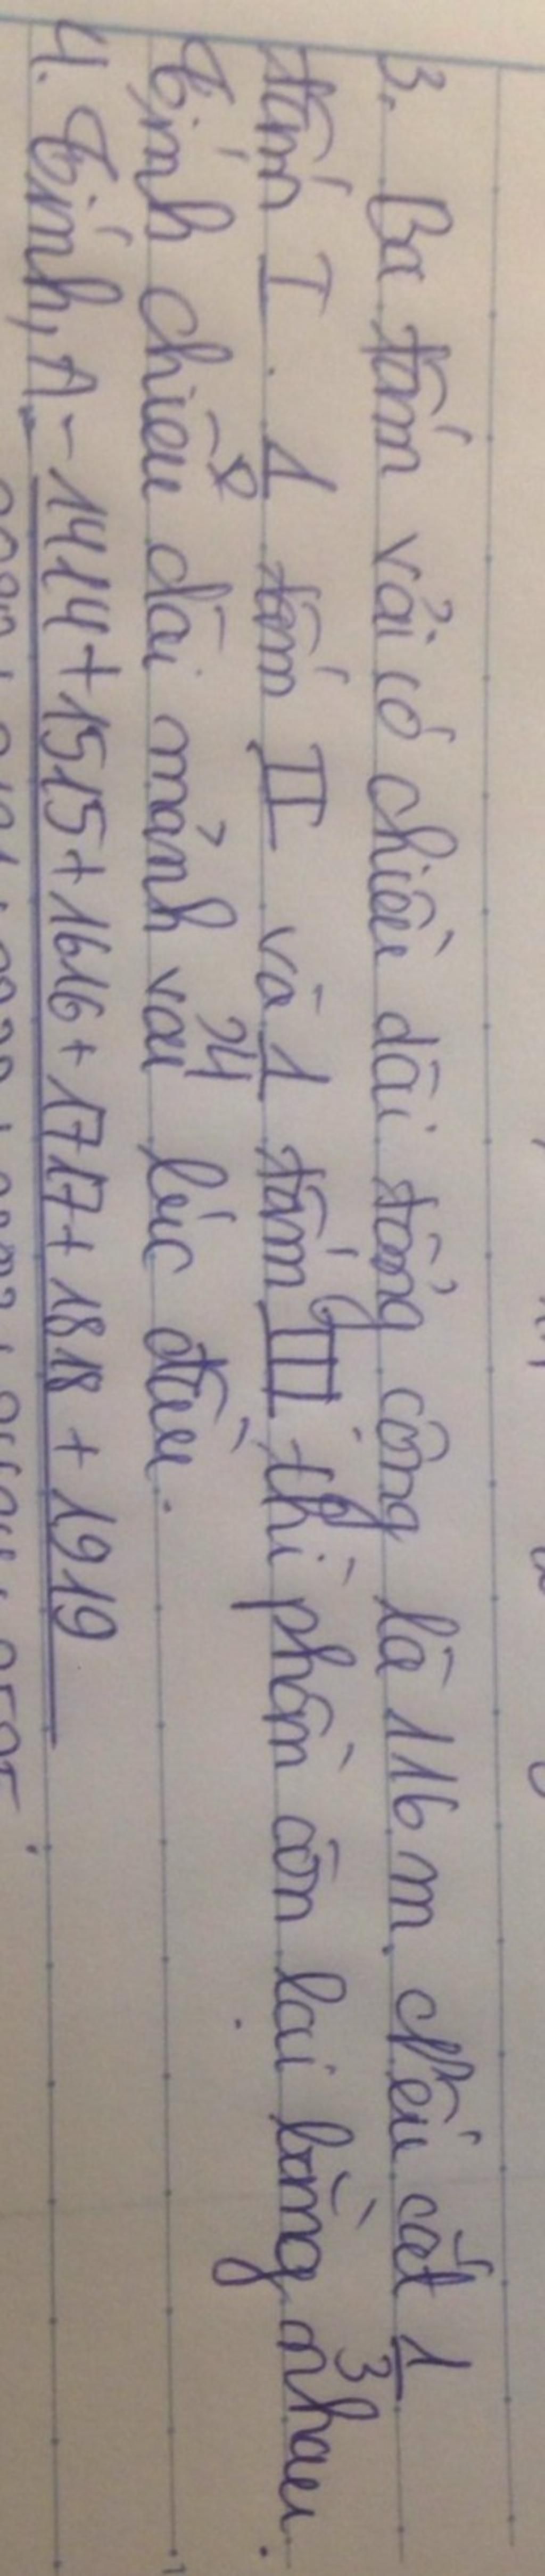 3. Ba tấm vải có chiều dài tổng cộng là 116 m. Nếu cắt 1/3
tấm I. 1/2 tấm II và 1/4 tấm III thì phần còn lại bằng nhau.
Tính chiều dài mảnh vải lúc đầu.
4. Tính, A = 1414+1515+1616+1717+1818+1919